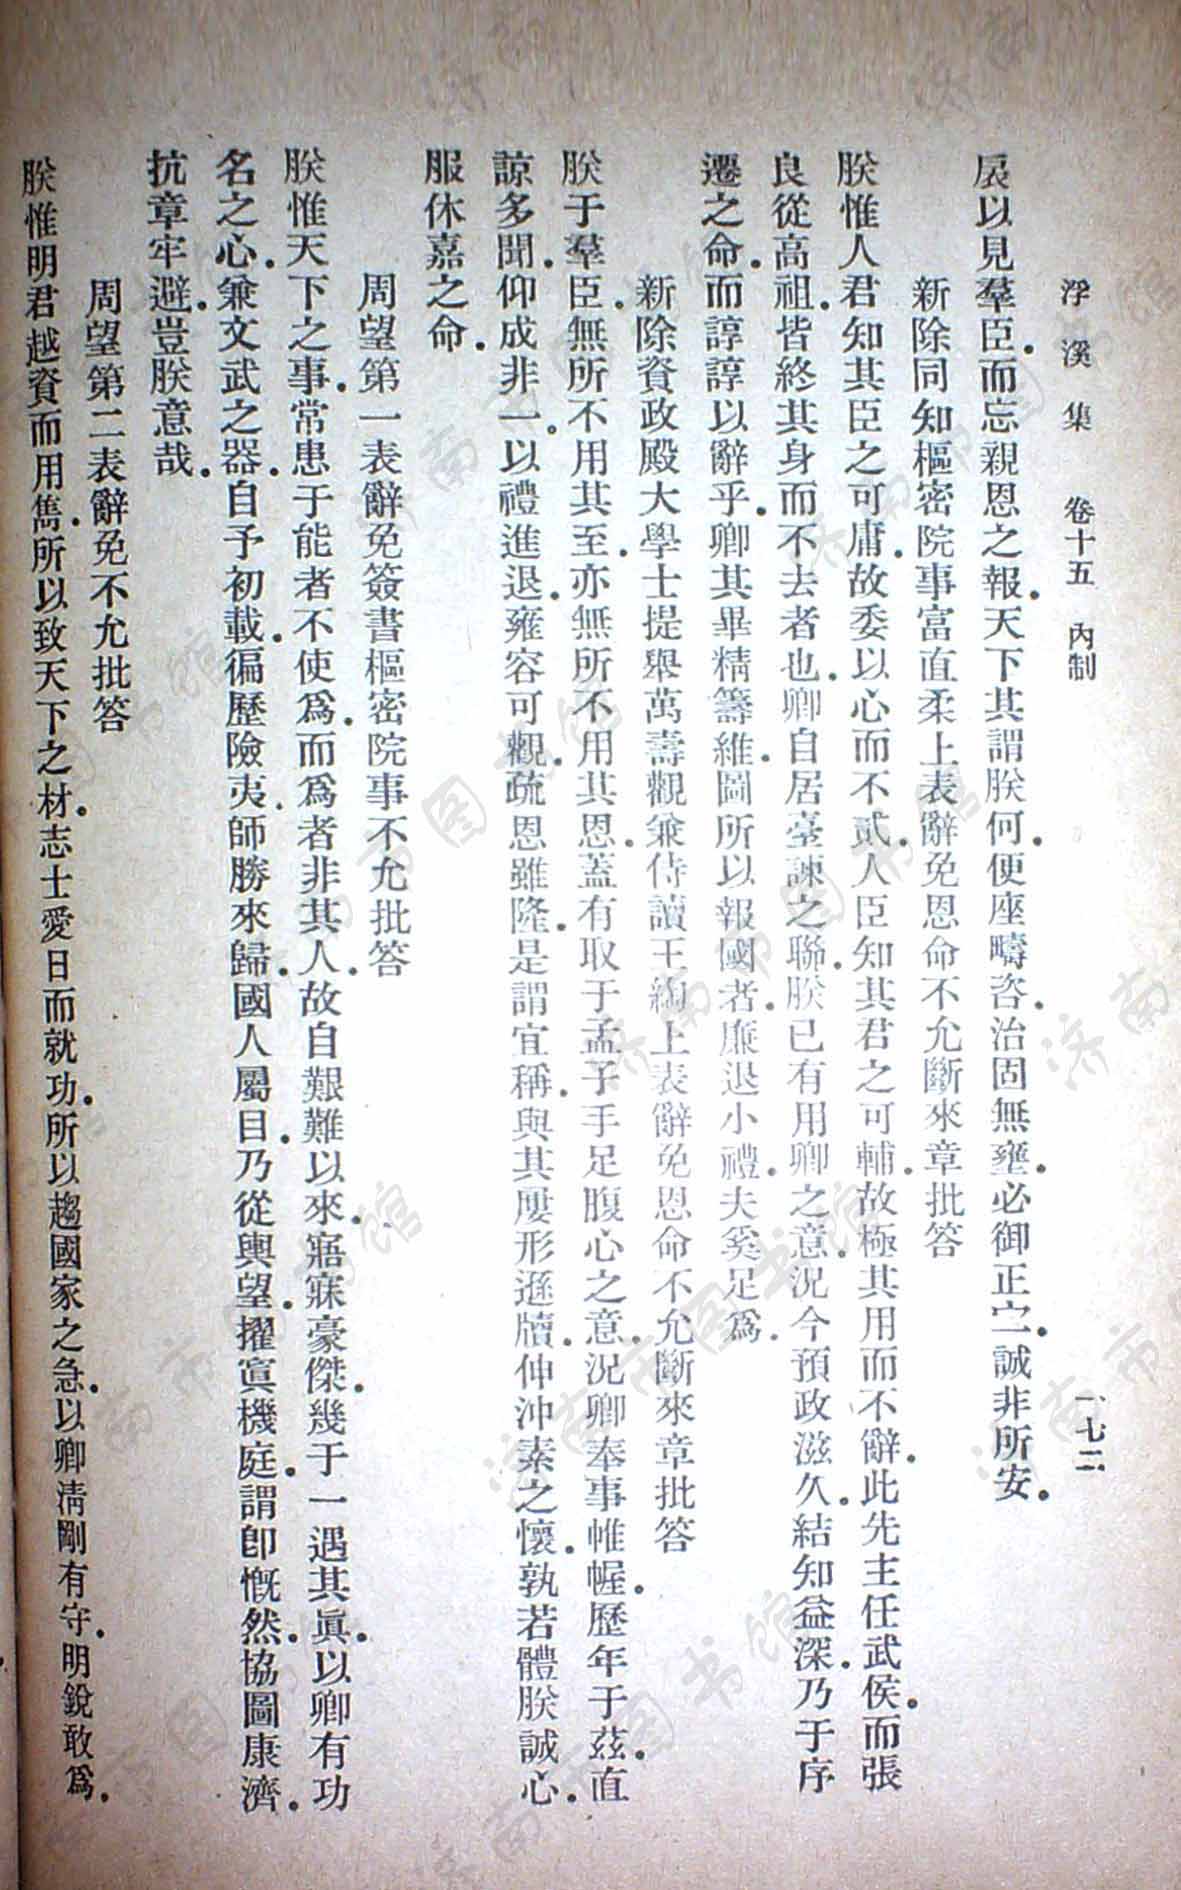 浮溪集　卷十五　內制　一七二
扆以見羣臣.而忘親恩之報.天下其謂朕何.便座疇咨.治固無壅.必御正宁.誠非所安.
新除同知樞密院事富直柔上表辭免恩命不允斷來章批答
朕惟人君知其臣之可庸.故委以心而不貳.人臣知其君之可輔.故極其用而不辭.此先主任武侯.而張
良從高祖.皆終其身而不去者也.卿自居臺諫之聯.朕已有用卿之意.況今預政滋久.結知益深.乃于序
遷之命.而諄諄以辭乎.卿其畢精籌維.圖所以報國者.廉退小禮.夫奚足爲.
新除資政殿大學士提舉萬壽觀兼侍讀王綯上表辭免恩命不允斷來章批答
朕于羣臣.無所不用其至.亦無所不用其恩.蓋有取于孟子手足腹心之意.況卿奉事帷幄.歷年于茲.直
諒多聞.仰成非一.以禮進退.雍容可觀.疏恩雖隆.是謂宜稱.與其屢形遜牘.伸沖素之懷.孰若體朕誠心.
服休嘉之命.
周望第一表辭免簽書樞密院事不允批答
朕惟天下之事.常患于能者不使爲.而爲者非其人.故自艱難以來.寤寐豪傑.幾于一遇其眞.以卿有功
名之心.兼文武之器.自予初載.徧歷險夷.師勝來歸.國人屬目.乃從輿望.擢寘機庭.謂卽慨然.協圖康濟.
抗章牢避.豈朕意哉.
周望第二表辭免不允批答
朕惟明君越資而用雋.所以致天下之材.志士愛日而就功.所以趨國家之急.以卿淸剛有守.明銳敢爲.
济南市图书馆